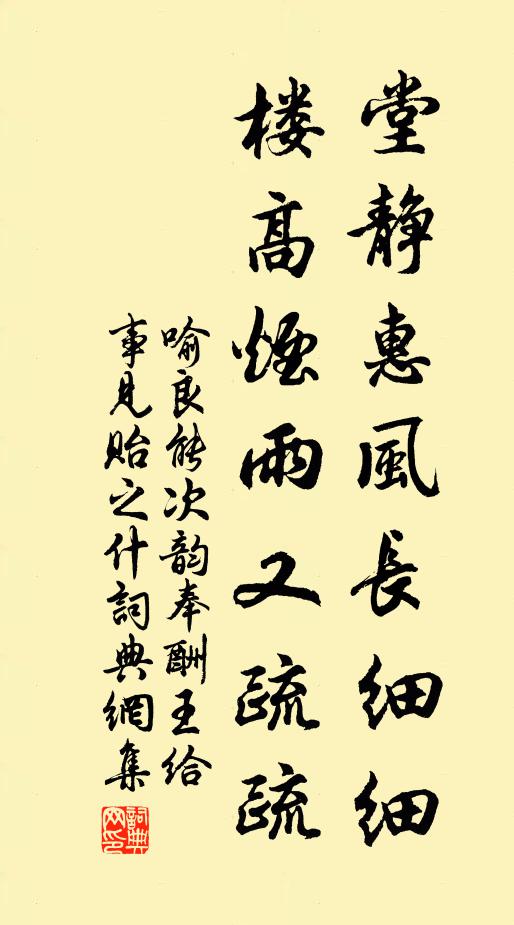 堂静惠風長细细
楼高煙雨又疏疏
喻良能次韵奉酬王给
事見贻之什詞典網集
詞典網印